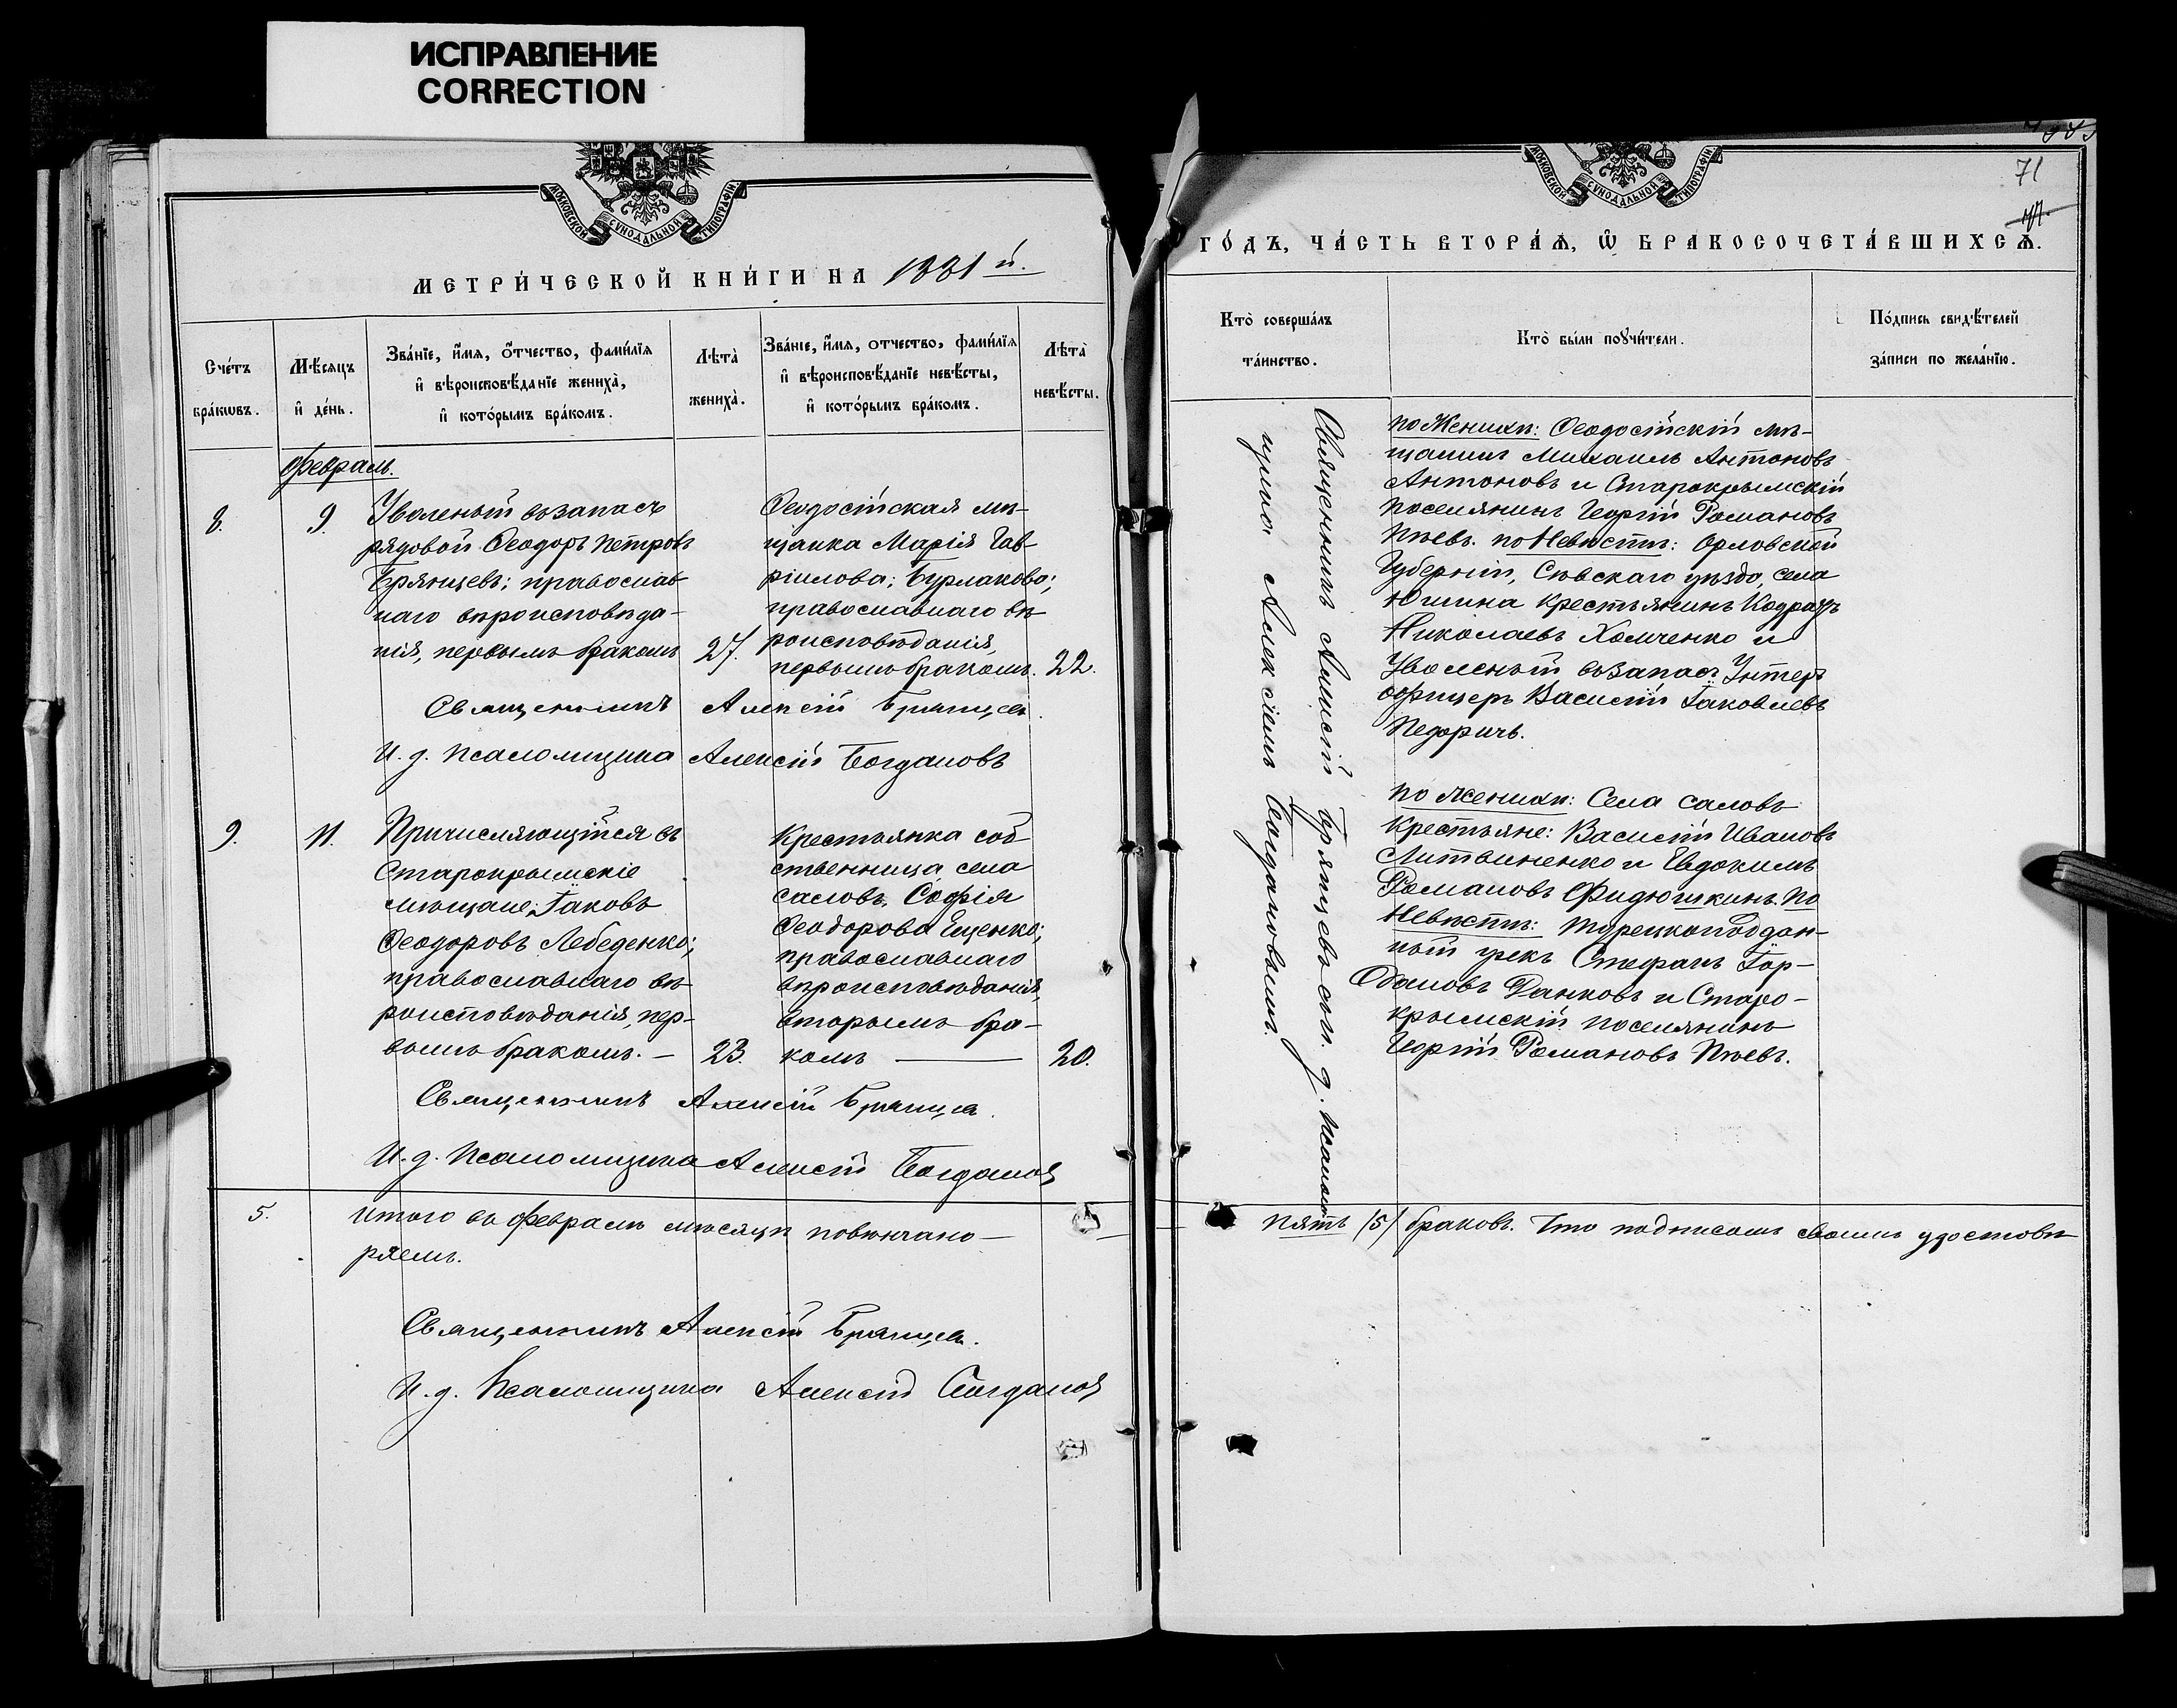 ИСПРАВЛЕНИЕ
CORRECTION
МОСКОВСКОЙ СѴНОДАЛЬНОЙ ТИПОГРАФІИ
МЕТРИ́ЧЕСКОЙ КНИ́ГИ НА 1881 й.
Сче́тъ
бра́кѡвъ.
Мѣ́сяцъ
и҆ де́нь.
Зва́нїе, и҆́мѧ, ѻ҆́тчество, фами́лїѧ
и҆ вѣроисповѣ́данїе жениха̀,
и҆ кото́рымъ бра́комъ.
Лѣта̀
жениха̀.
Зва́нїе, и҆́мѧ, отчество, фами́лїѧ
и҆ вѣроисповѣ́данїе невѣ́сты,
и҆ кото́рымъ бра́комъ.
Лѣта̀
невѣ́сты.
Февраль.
8.
9.
Уволеный въ запасъ
рядовой Ѳеодоръ Петровъ
Брянцевъ; православ-
наго вѣроисповѣда-
нія, первымъ бракомъ
27.
Ѳеодосійская мѣ-
щанка Марія Гав-
ріилова; Бурлакова;
православнаго вѣ-
роисповѣданія,
первымъ бракомъ.
22.
Священникъ Алексій Брянцев.
И. д. Псаломщика Алексій Богдановъ
9.
11.
Причисляющійся въ
Старокрымскіе
мѣщане, Іаковъ
Ѳеодоровъ Лебеденко;
православнаго вѣ-
роисповѣданія, пер-
вымъ бракомъ. —
23.
Крестьянка соб-
ственница села
Саловъ, Софія
Ѳеодорова Ещенко;
православнаго
вѣроисповѣданія,
вторымъ бра-
комъ —
20.
Священникъ Алексій Брянцев.
И. д. Псаломщика Алексій Богданов
5.
Итого въ Февралѣ мѣсяцѣ повѣнчано —
ряемъ.
Священникъ Алексій Брянцев.
И. д. Псаломщика Алексій Богданов
71
МОСКОВСКОЙ СѴНОДАЛЬНОЙ ТИПОГРАФІИ
ГО́ДЪ, ЧА́СТЬ ВТОРА́Ѧ, Ѽ БРАКОСОЧЕТА́ВШИХСѦ.
Кто̀ соверша́лъ
та́инство.
Кто̀ бы́ли поꙋчи́тели.
По́дпись свидѣ́телей
за́писи по жела́нїю.
Священникъ Алексій Брянцевъ съ и. д. Псалом-
щика Алексіемъ Богдановымъ.
по Женихѣ: Ѳеодосійскій мѣ-
щанинъ Михаилъ Антоновъ
Антоновъ и Старокрымскій
поселянинъ Георгій Романовъ
Пѣевъ. по Невѣстѣ: Орловской
Губерніи, Сѣвскаго уѣзда, села
Юшина крестьянинъ Кодратъ
Николаевъ Хомченко и
Уволеный въ запасъ Унтеръ
офицеръ Василій Іаковлевъ
Педоричъ.
по Женихѣ: Села Саловъ
крестьяне: Василій Ивановъ
Литвиненко и Евдокимъ
Романовъ Фидюшкинъ. По
Невѣстѣ: Турецкоподдан-
ный грекъ Стефанъ Іор-
дановъ Данковъ и Старо-
крымскій поселянинъ
Георгій Романовъ Пѣевъ.
пять /5/ браковъ. Что подписомъ своимъ удостовѣ-